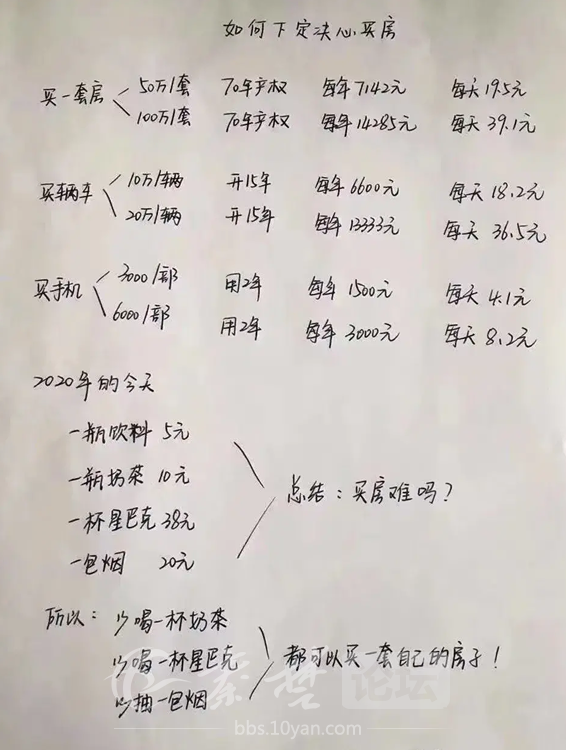 如何下定决心买房
买一套房 50万/套 70年产权 每年7142元 每天19.5元
100万/套 70年产权 每年14285元 每天39.1元
买辆车 10万/辆 开15年 每年6600元 每天18.2元
20万/辆 开15年 每年13333元 每天36.5元
买手机 3000/部 用2年 每年1500元 每天4.1元
6000/部 用2年 每年3000元 每天8.2元
2020年的今天
一瓶饮料 5元
一瓶奶茶 10元
总结:买房难吗?
一杯星巴克 38元
一包烟 20元
所以: 少喝一杯奶茶
少喝一杯星巴克 都可以买一套自己的房子!
少抽一包烟
秦楚论坛
bbs.10yan.com